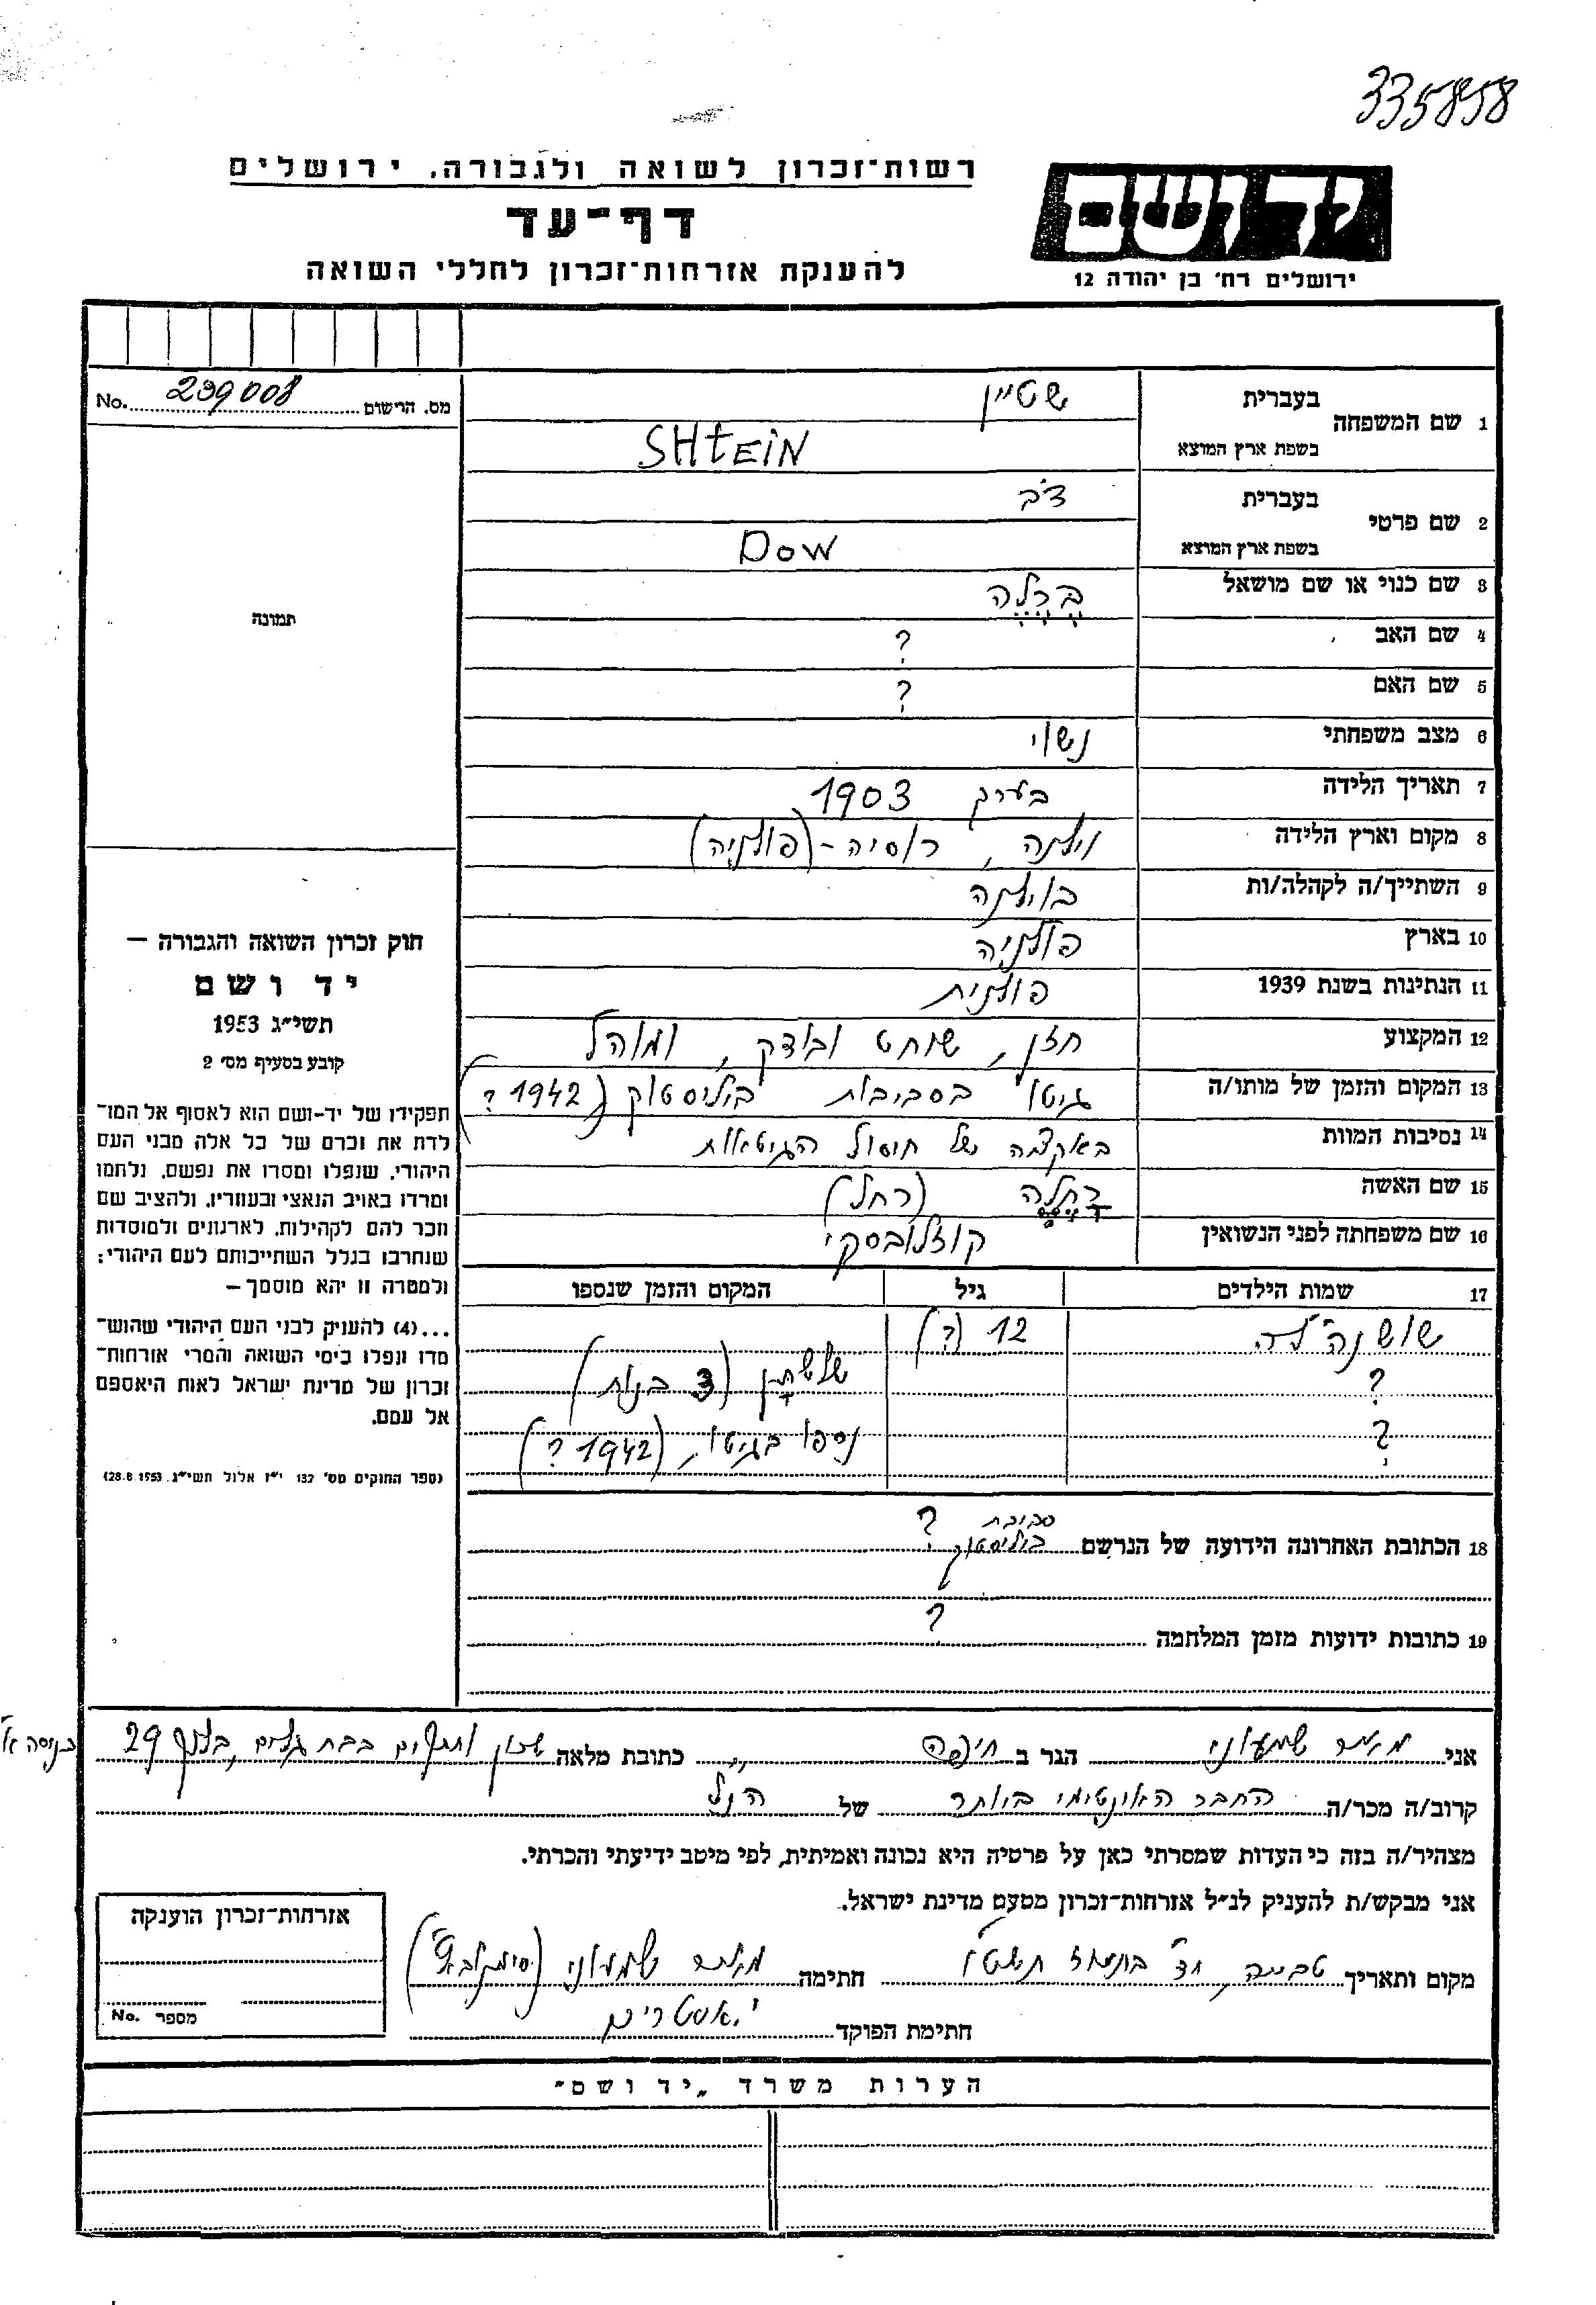 335858
רשות־זכרון לשואה ולגבורה, ירושלים
דף־עד
להענקת אזרחות־זכרון לחללי השואה
יד ושם
ירושלים רח' בן יהודה 12
מס. הרישום 239008 No.
תמונה
חוק זכרון השואה והגבורה –
יד ושם
תשי״ג 1953
קובע בסעיף מס' 2
תפקידו של יד-ושם הוא לאסוף אל המו־
לדת את זכרם של כל אלה מבני העם
היהודי, שנפלו ומסרו את נפשם, נלחמו
ומרדו באויב הנאצי ובעוזריו, ולהציב שם
וזכר להם לקהילות, לארגונים ולמוסדות
שנחרבו בגלל השתייכותם לעם היהודי;
ולמטרה זו יהא מוסמך –
...(4) להעניק לבני העם היהודי שהוש־
מדו ונפלו בימי השואה והמרי אזרחות־
זכרון של מדינת ישראל לאות היאספם
אל עמם.
(ספר החוקים מס' 132 י״ז אלול תשי״ג 28.8.1953)
1 שם המשפחה בעברית שטיין
בשפת ארץ המוצא SHtEiN
2 שם פרטי בעברית דב
בשפת ארץ המוצא Dow
3 שם כנוי או שם מושאל ברלה
4 שם האב ?
5 שם האם ?
6 מצב משפחתי נשוי
7 תאריך הלידה בערך 1903
8 מקום וארץ הלידה וילנה, רוסיה-(פולניה)
9 השתייך/ה לקהלה/ות בוילנה
10 בארץ פולניה
11 הנתינות בשנת 1939 פולנית
12 המקצוע חזן, שוחט ובודק, ומוהל
13 המקום והזמן של מותו/ה גיטו בסביבות ביליסטוק (1942 ?)
14 נסיבות המוות באקציה של חוסול הגיטאות
15 שם האשה רחלה (רחל)
16 שם משפחתה לפני הנשואין קוזלובסקי
17 שמות הילדים גיל המקום והזמן שנספו
שושנה'לה 12 (?)
? שלשתן (3 בנות)
? נספו בגיטו, (1942 ?)
18 הכתובת האחרונה הידועה של הנרשם סביבת ביליסטוק ?
19 כתובות ידועות מזמן המלחמה ?
אני מאיר שמעוני הגר ב חיפה כתובת מלאה שכון ותיקים בבת גלים, בלוק 29 כניסה א'
קרוב/ה מכר/ה החבר האינטימי ביותר של הנ״ל
מצהיר/ה בזה כי העדות שמסרתי כאן על פרטיה היא נכונה ואמיתית, לפי מיטב ידיעתי והכרתי.
אני מבקש/ת להעניק לנ״ל אזרחות־זכרון מטעם מדינת ישראל.
מקום ותאריך טבריה, בתמוז תשט״ו חתימה מאיר שמעוני
חתימת הפוקד
אזרחות־זכרון הוענקה
מספר No.
הערות משרד „יד ושם״